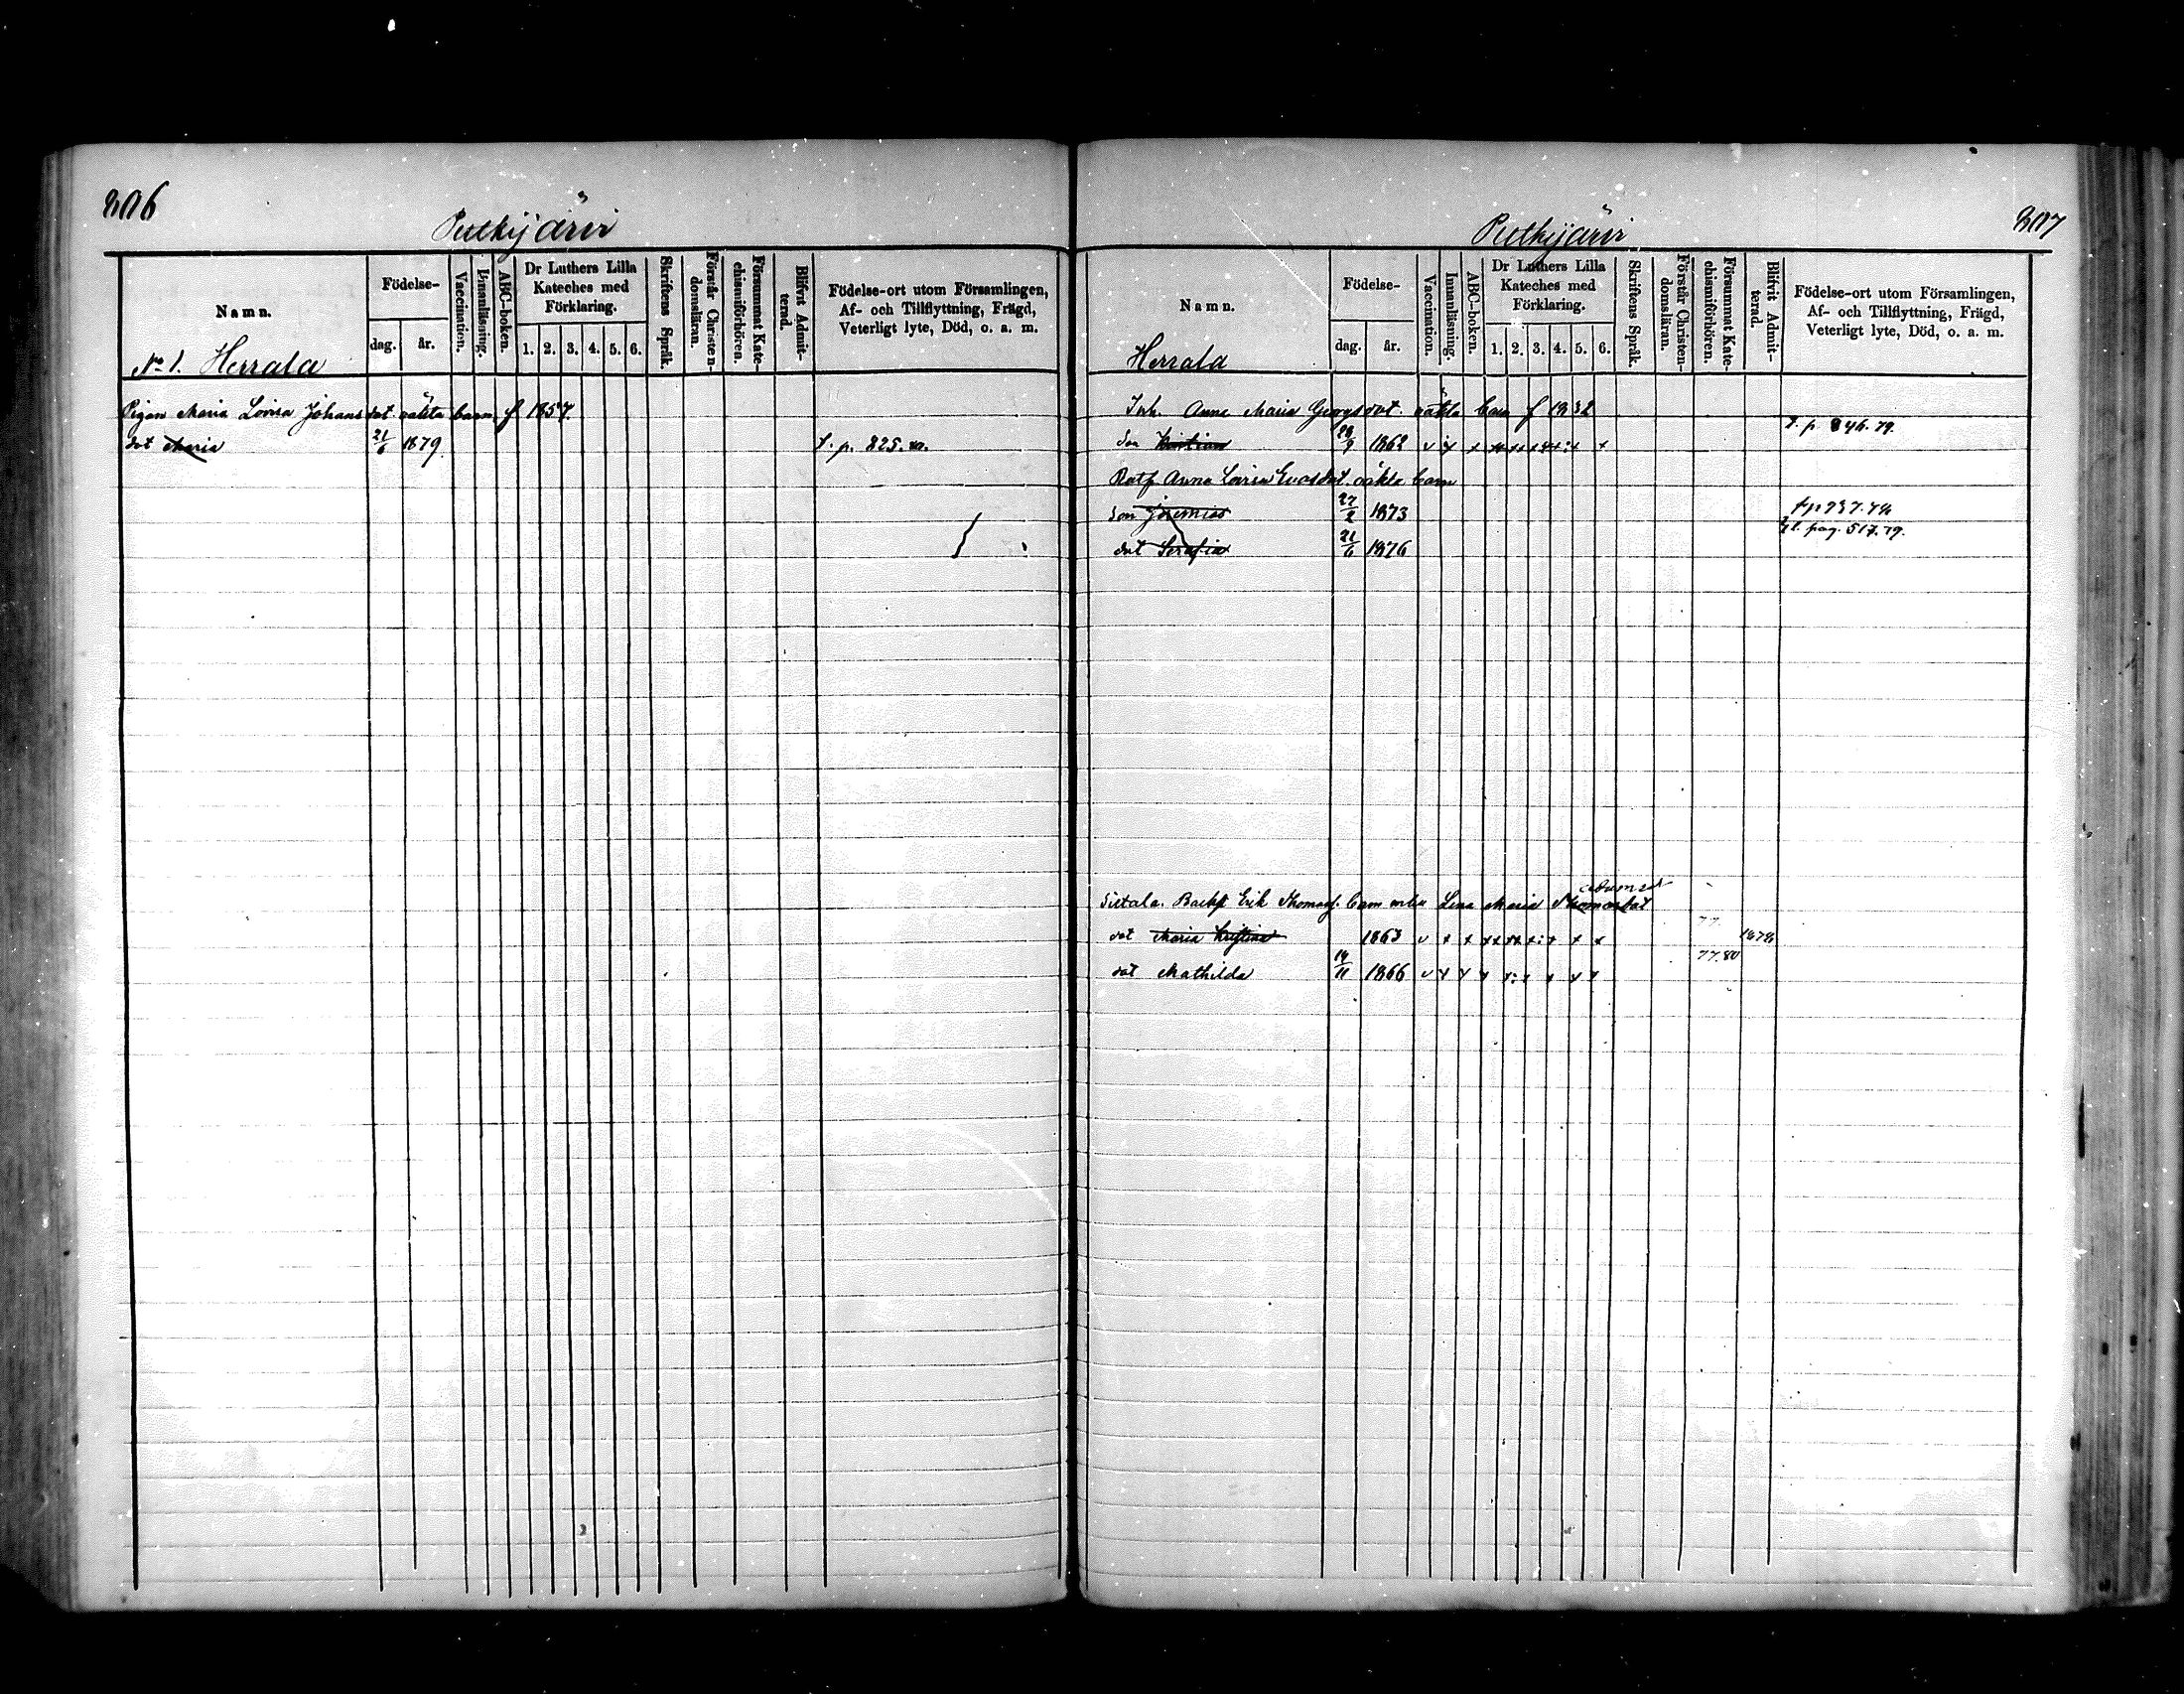 306
Putkijärvi
Namn.
Födelse-
dag.
år.
Vaccination.
Innanläsning.
ABC-boken.
Dr Luthers Lilla
Kateches med
Förklaring.
1. 2. 3. 4. 5. 6.
Skriftens Språk.
Förstår Christen-
domsläran.
Försummat Kate-
chismiförhören.
Blifvit Admit-
terad.
Födelse-ort utom Församlingen,
Af- och Tillflyttning, Frägd,
Veterligt lyte, Död, o. a. m.
No 1. Herrala
Pigan Maria Lovisa Johansdot. oäkta barn f 1857.
dot Maria 21/6 1879 f. p. 825.
307
Putkijärvi
Namn.
Födelse-
dag.
år.
Vaccination.
Innanläsning.
ABC-boken.
Dr Luthers Lilla
Kateches med
Förklaring.
1. 2. 3. 4. 5. 6.
Skriftens Språk.
Förstår Christen-
domsläran.
Försummat Kate-
chismiförhören.
Blifvit Admit-
terad.
Födelse-ort utom Församlingen,
Af- och Tillflyttning, Frägd,
Veterligt lyte, Död, o. a. m.
Herrala
Inh. Anna Maria Georgsdot. oäkta barn f 1832
Son 1862 v x x x x x x x x f. p 846. 79.
Anna Lovisa Evasdot. oäkta barn
Son Jeremias 27/2 1873
dot Serafia 21/6 1876 pag. 517. 79.
Erik Thomass. barn Lena Maria Thomasdot
dot Maria Kristina 1863 v x x x x x x x x 77. 1878
dot Mathilda 14/11 1866 v x x x x x x x x 77.80